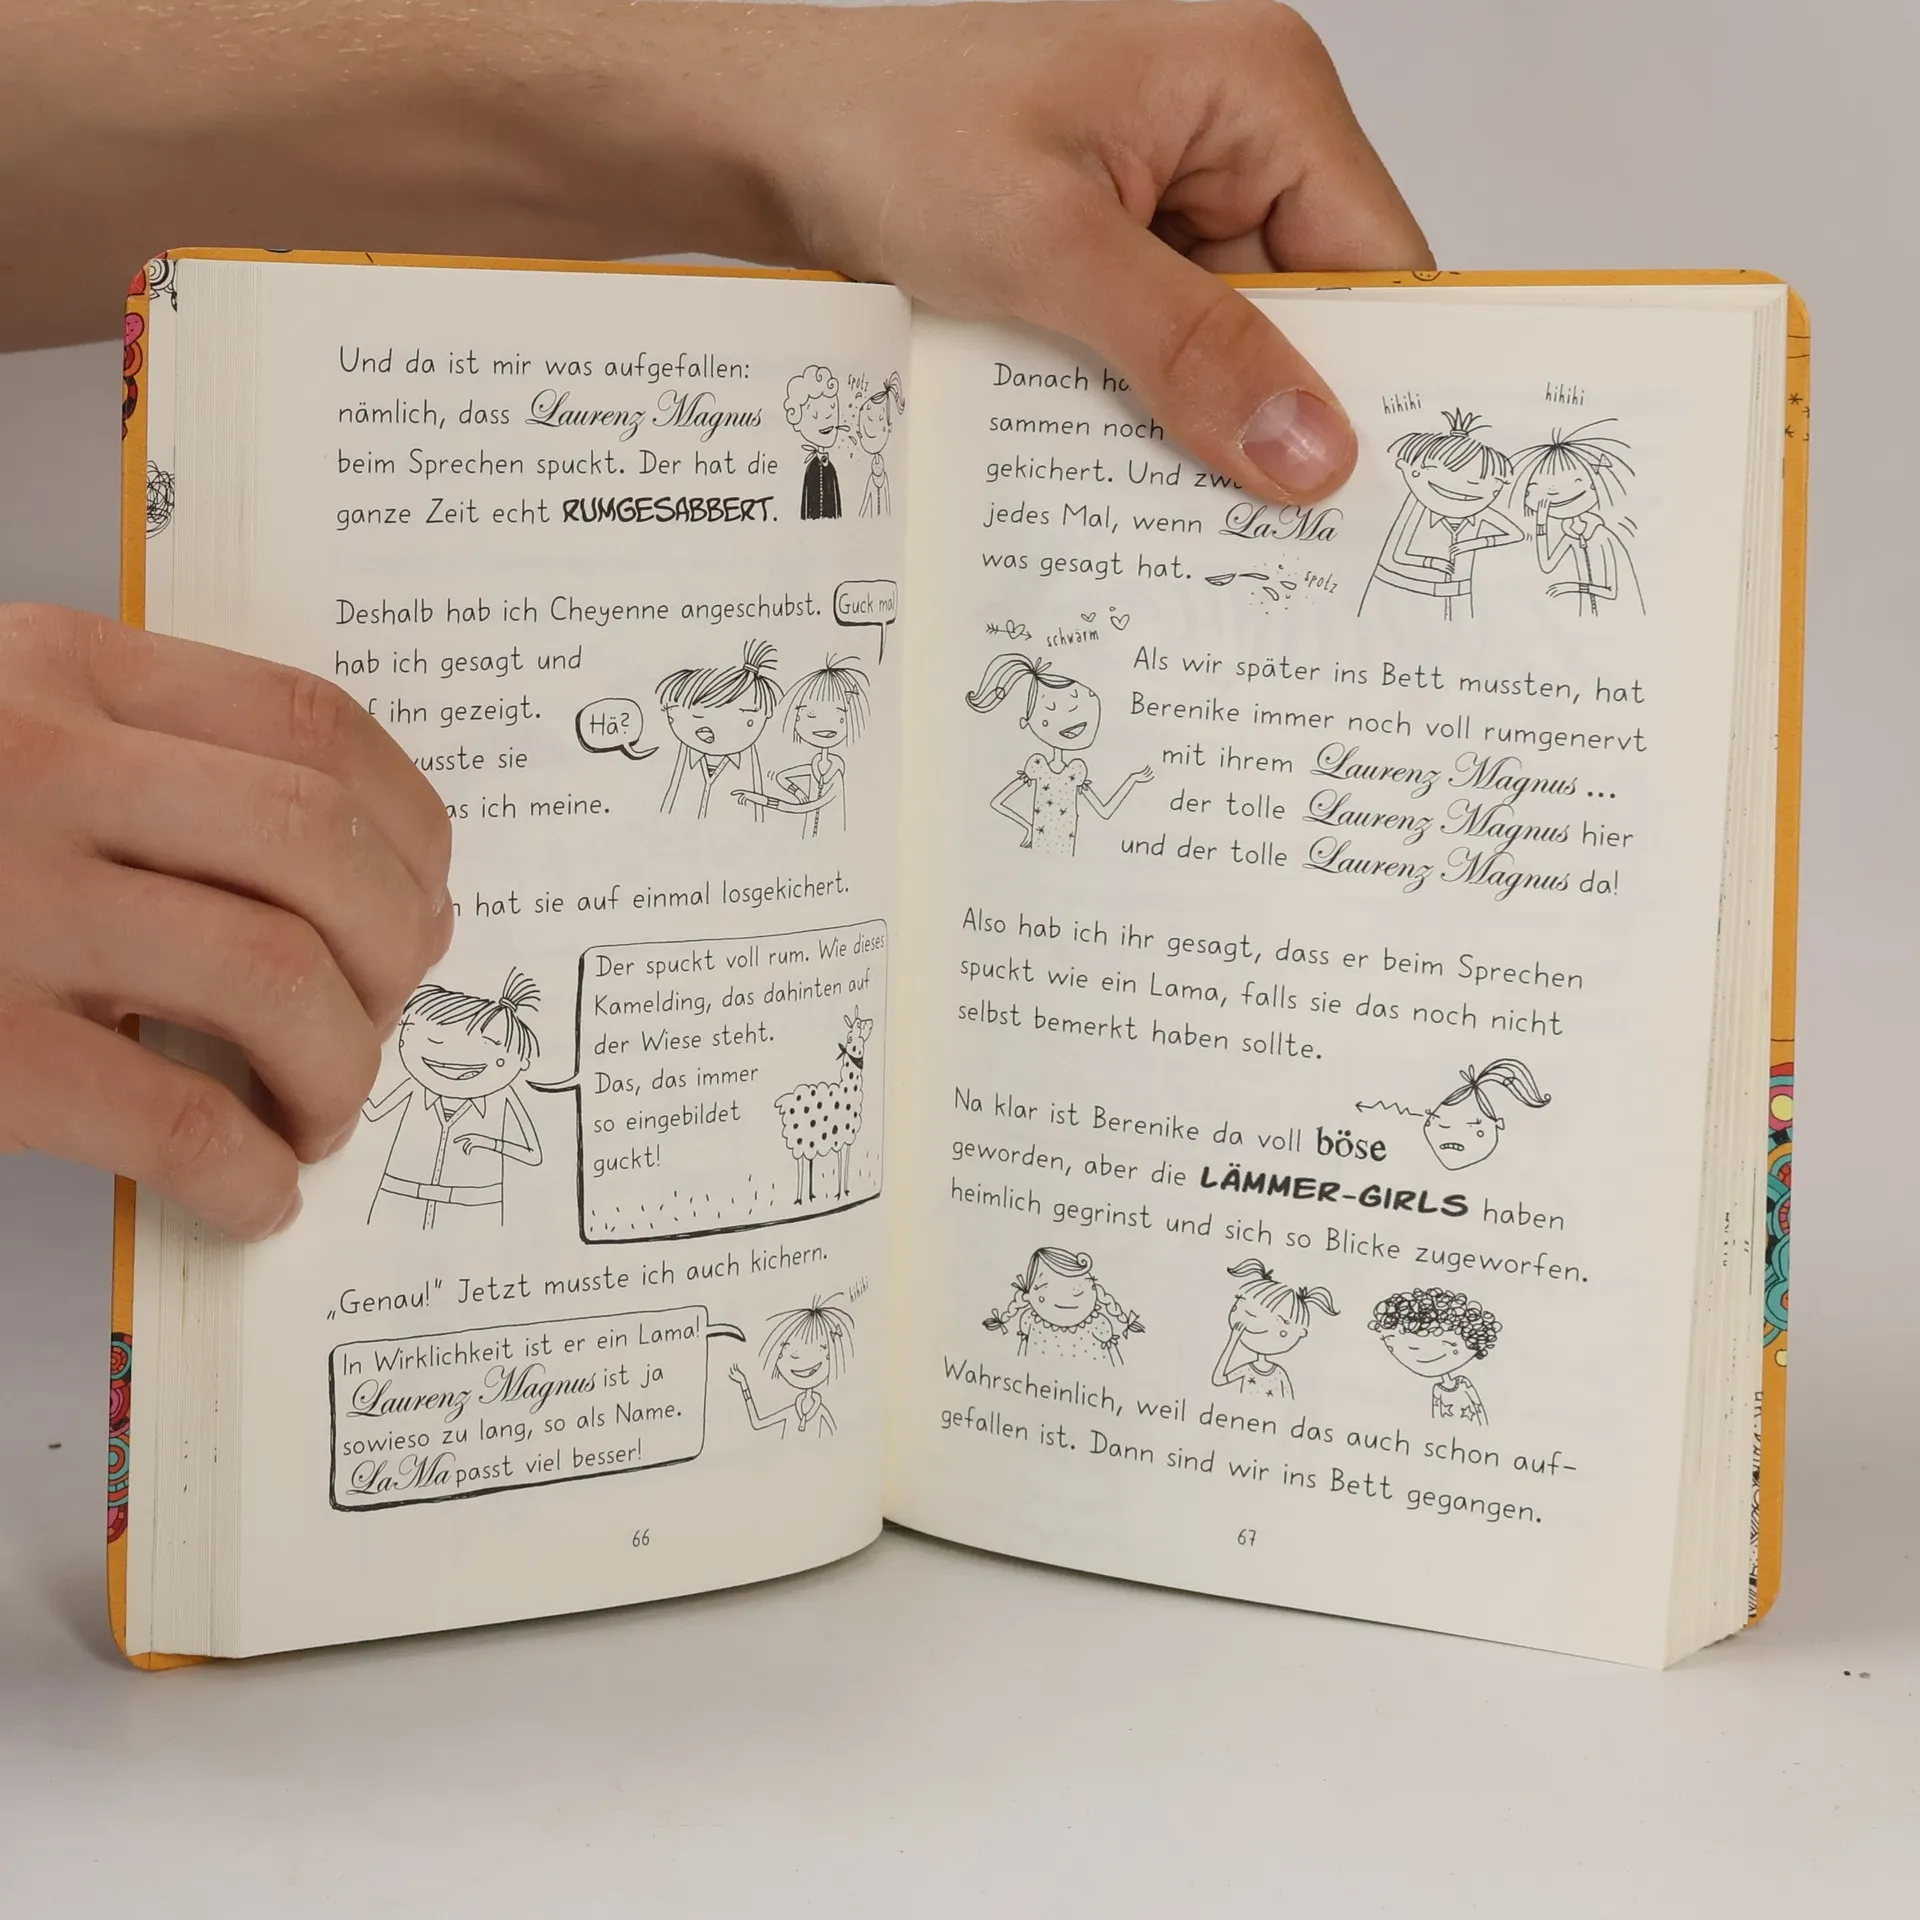 Und da ist mir was aufgefallen:
nämlich, dass Laurenz Magnus
beim Sprechen spuckt. Der hat die
ganze Zeit echt RUMGESABBERT.
spotz
Deshalb hab ich Cheyenne angeschubst.
Guck mal
hab ich gesagt und
ihn gezeigt.
Hä?
wusste sie
ich meine.
hat sie auf einmal losgekichert.
Der spuckt voll rum. Wie dieses
Kamelding, das dahinten auf
der Wiese steht.
Das, das immer
so eingebildet
guckt!
„Genau!" Jetzt musste ich auch kichern.
hihihi
In Wirklichkeit ist er ein Lama!
Laurenz Magnus ist ja
sowieso zu lang, so als Name.
LaMa passt viel besser!
66
Danach
sammen noch
gekichert. Und
jedes Mal, wenn LaMa
was gesagt hat.
spotz
hihihi
hihihi
schwärm
Als wir später ins Bett mussten, hat
Berenike immer noch voll rumgenervt
mit ihrem Laurenz Magnus ...
der tolle Laurenz Magnus hier
und der tolle Laurenz Magnus da!
Also hab ich ihr gesagt, dass er beim Sprechen
spuckt wie ein Lama, falls sie das noch nicht
selbst bemerkt haben sollte.
Na klar ist Berenike da voll böse
geworden, aber die LÄMMER-GIRLS haben
heimlich gegrinst und sich so Blicke zugeworfen.
Wahrscheinlich, weil denen das auch schon auf-
gefallen ist. Dann sind wir ins Bett gegangen.
67